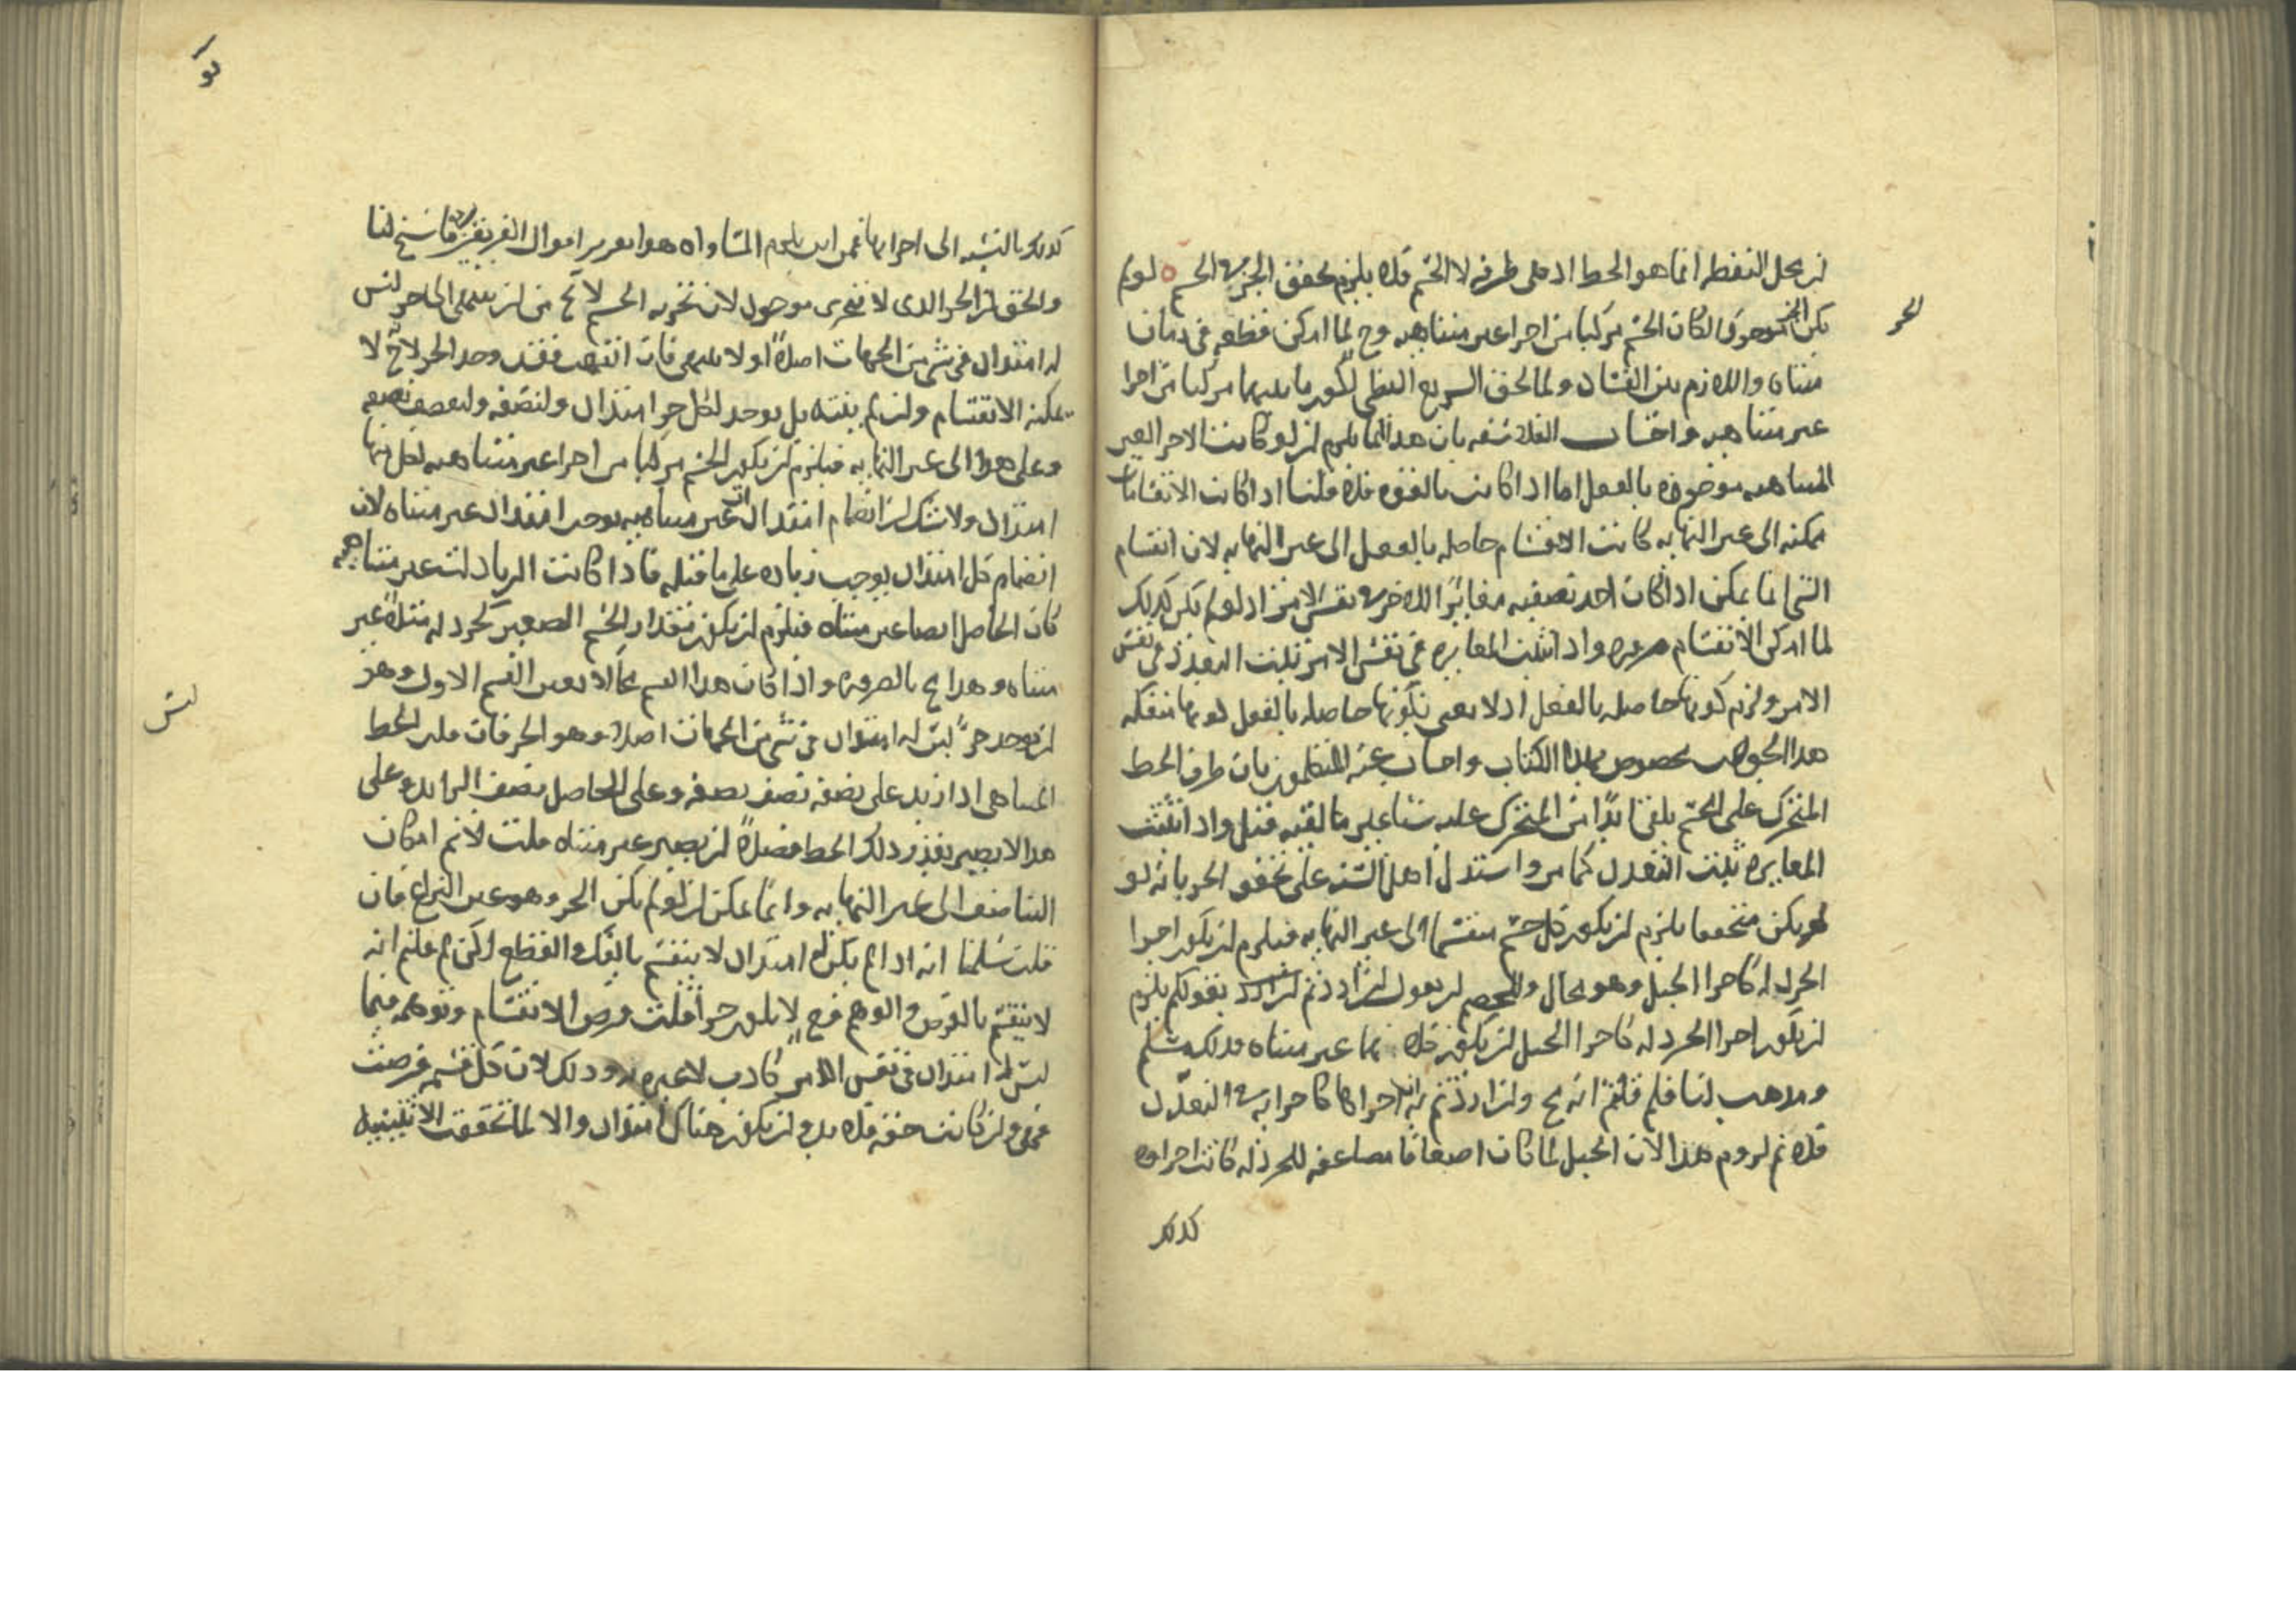 لان محل النقطة انما هو الخط اذ هى طرفه لا الجسم فلا يلزم تحقق الجزء فى الجسم ه لو لم
الجزء
يكن الجزء موجودا لكان الجسم مركبا من اجزا غير متناهيه وح لما امكن قطعه فى زمان
متناه واللازم بين الفساد ولما لحق السريع البطى لكون ما بينهما مركبا من اجزا
غير متناهيه واجاب الفلاسفه بان هذا انما يلزم ان لو كانت الاجزا الغير
المتناهيه موجوده بالفعل اما اذا كانت بالقوه فلا قلنا اذا كانت الانقسامات
ممكنه الى غير النهايه كانت الاقسام حاصله بالفعل الى غير النهايه لان انقسام
الشى انما يمكن اذا كان احد نصفيه مغايرا للاخر فى نفس الامر اذ لو لم يكن كذلك
لما امكن الانقسام ضروره واذا ثبتت المغايره فى نفس الامر ثبت التعدد فى نفس
الامر ولزم كونها حاصله بالفعل اذ لا يعنى بكونها حاصله بالفعل كونها منفكه
هذا الجواب مخصوص بهذا الكتاب واجاب عنه المتكلمون بان طرف الخط
المتحرك على الجسم يلقى ابدا من المتحرك عليه شيا غير ما لقيه قبل واذا ثبتت
المغايره ثبت التعدد كما مر واستدل اهل السنه على تحقق الجزء بانه لو
لم يكن متحققا يلزم ان يكون كل جسم منقسما الى غير النهايه فيلزم ان يكون اجزا
الخردله كاجزا الجبل وهو محال وللخصم ان يقول ان اردتم بقولكم يلزم
ان يكون اجزا الخردله كاجزا الجبل ان يكون كلاهما غير متناه فذلك مسلم
ومذهب لنا فلم قلتم انه مح وان اردتم به ان اجزاها كاجزايه فى التعدد
فلا نم لزوم هذا لان الجبل لما كان اضعافا مضاعفه للخردله كانت اجزاوه
كذلك
كذلك بالنسبه الى اجزايها فمن اين يلزم المساواه هذا تقرير اقوال الفريقين وما سنح لنا
والحق ان الجزء الذى لا يتجزى موجود لان تجزيه الجسم لا تخ من ان ينتهى الى جزء ليس
له امتداد فى شى من الجهات اصلا او لا ينتهى فان انتهت فقد وجد الجزء لانه لا
يمكنه الانقسام وان لم ينته بل يوجد لكل جزء امتداد ولنصفه ولنصف نصفه
وهلم جرا الى غير النهايه فيلزم ان يكون الجسم مركبا من اجزا غير متناهيه لكل منها
امتداد ولا شك ان انضمام امتدادات غير متناهيه يوجب امتدادا غير متناه لان
انضمام كل امتداد يوجب زياده على ما قبله فاذا كانت الزيادات غير متناهيه
كان الحاصل ايضا غير متناه فيلزم ان يكون مقدار الجسم الصغير كخردله مثلا غير
متناه وهذا مح بالضروره واذا كان هذا القسم محالا تعين القسم الاول وهو
ليس
ان يوجد جزء ليس له امتداد فى شى من الجهات اصلا وهو الجزء فان قلت الخط
المتناهى اذا زيد على نصفه نصف نصفه وعلى الحاصل نصف الزايد وعلى
هذا لا يصير بقدر ذلك الخط فضلا ان يصير غير متناه قلت لا نم امكان
التناصف الى غير النهايه وانما يمكن ان لو لم يكن الجزء وهو عين النزاع فان
قلت سلمنا انه اذا لم يكن له امتداد لا ينقسم بالفك والقطع لكن لم قلتم انه
لا ينقسم بالفرض والوهم فح لا يكون جزءا قلت فرض الانقسام وتوهمه فيما
ليس له امتداد فى نفس الامر كاذب لا عبره به وذلك لان كل قسمه فرضت
فهى وان كانت حقه فلا بد وان يكون هناك امتداد والا لما تحققت الاثنينيه